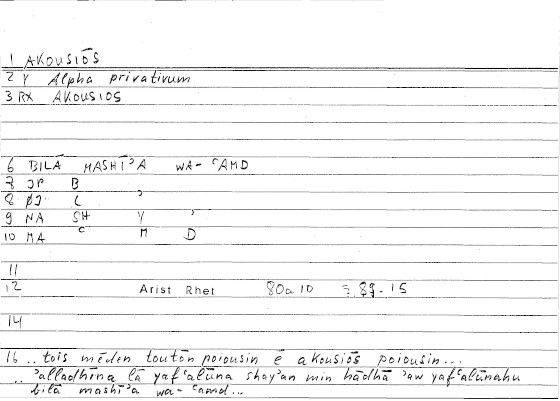 1 AKOUSIŌS
2 Y Alpha privativum
3 RX AKOUSIOS
6 BILĀ MASHĪ'A WA-ʿAMD
7 JP B
8 ØJ L '
9 NA SH Y '
10 MA ʿ M D
11
12 Arist Rhet 80a10 89-15
14
16 .. tois mēden toutōn poiousin ē akousiōs poiousin...
.. 'alladhīna lā yafʿalūna shay'an min hādhā 'aw yafʿalūnahu
bilā mashī'a wa-ʿamd...